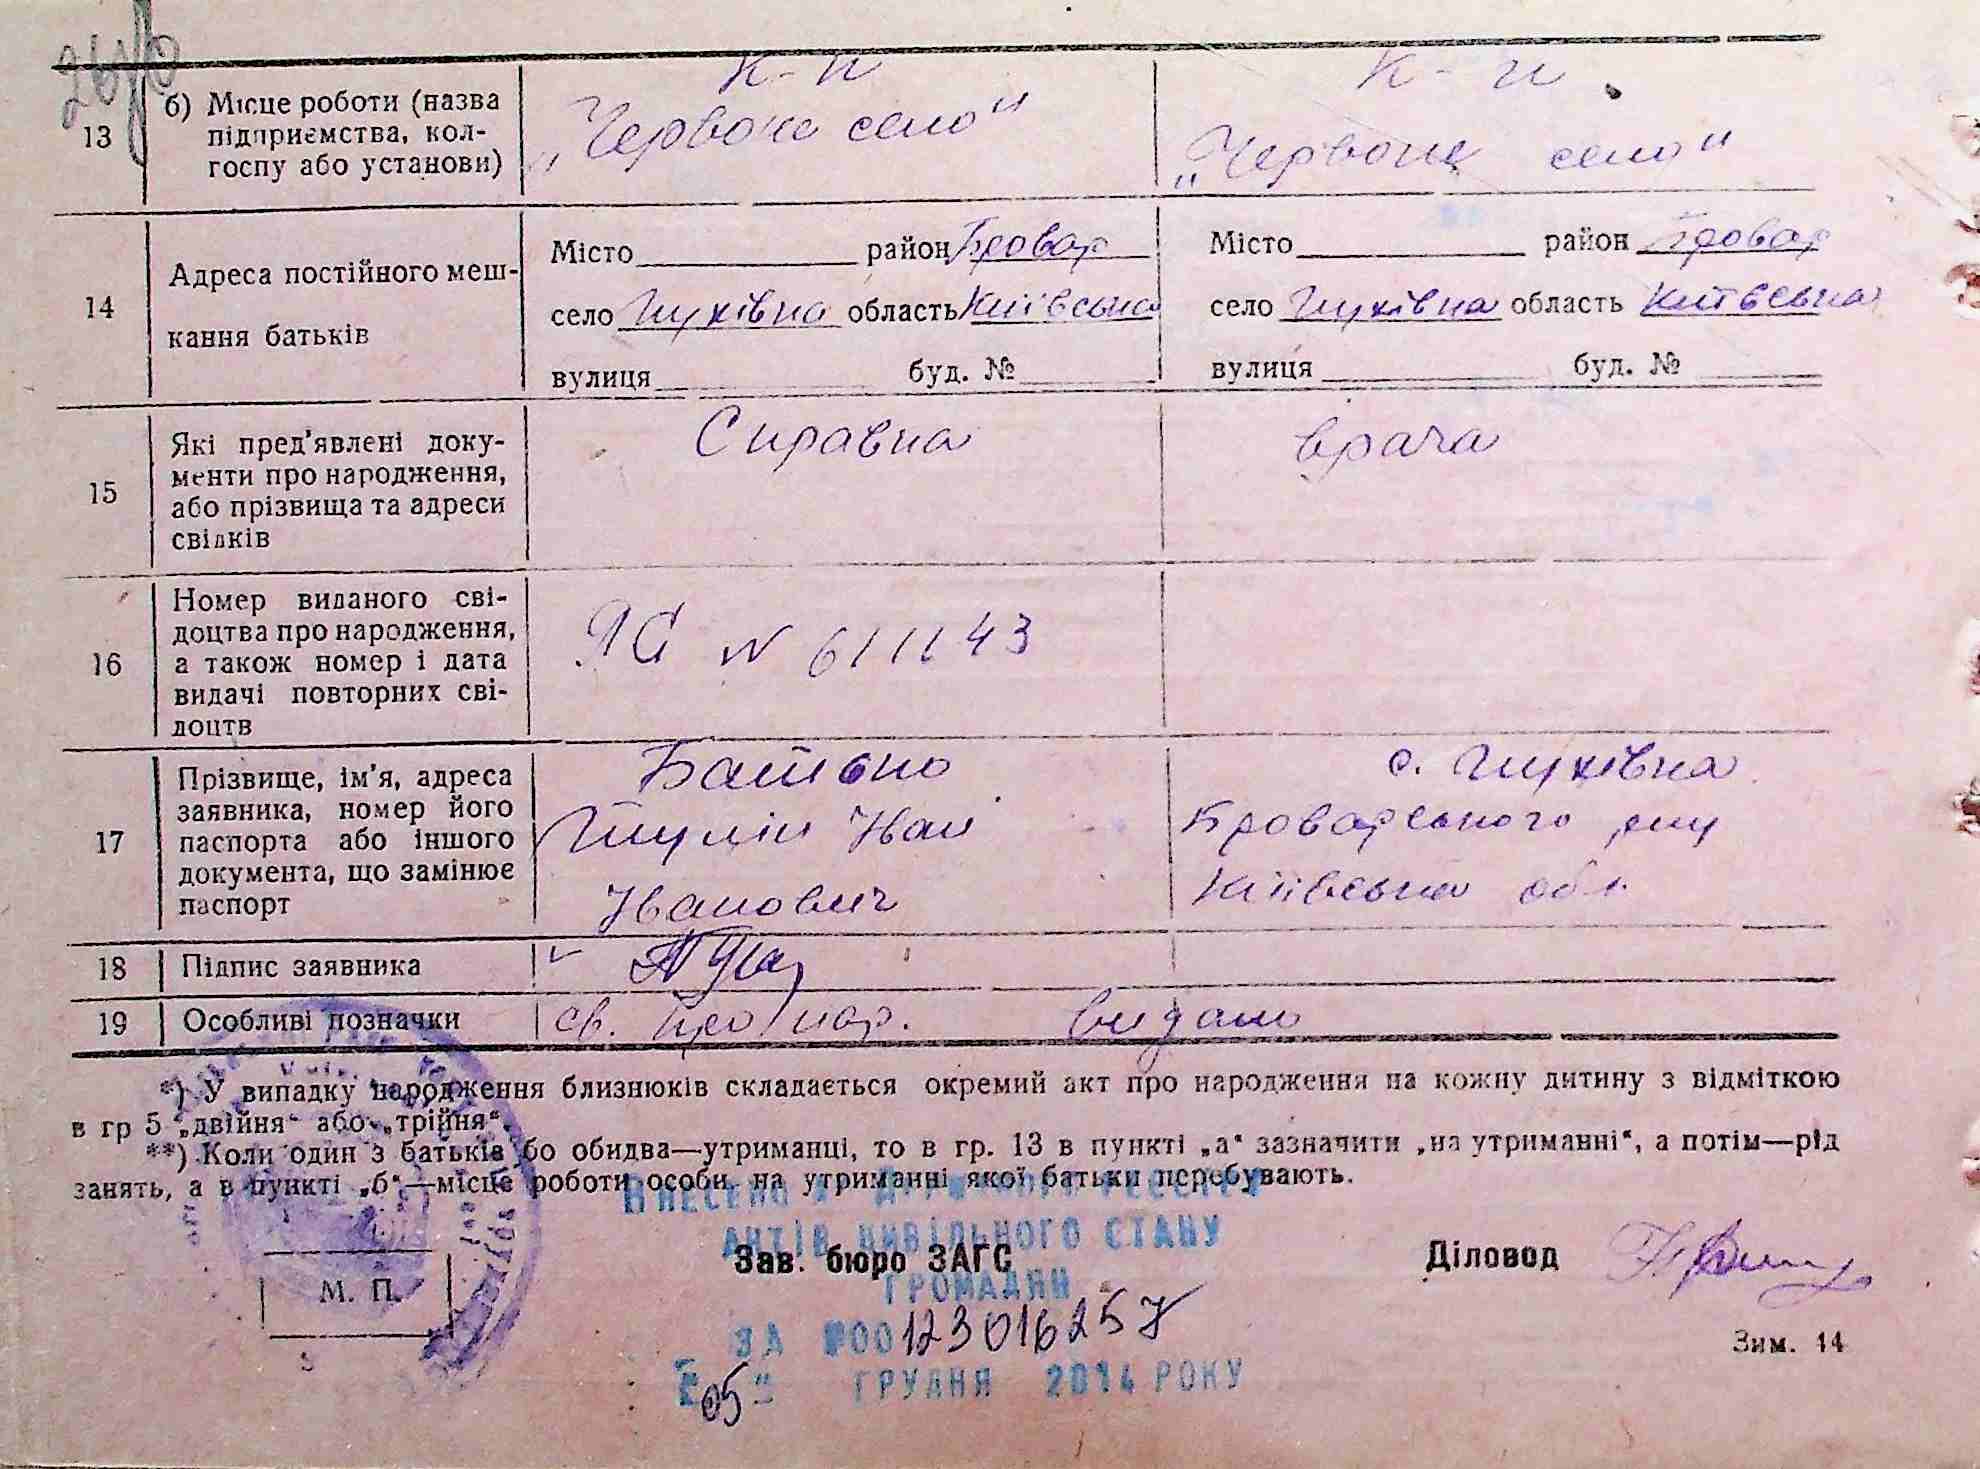 К-п К-п
13 б) Місце роботи (назва підприємства, колгоспу або установи) „Червоне село" „Червоне село"
14 Адреса постійного мешкання батьків
Місто район Бровар Місто район Бровар
село Пухівка область Київська село Пухівка область Київська
вулиця буд. № вулиця буд. №
15 Які пред'явлені документи про народження, або прізвища та адреси свідків Справка врача
16 Номер виданого свідоцтва про народження, а також номер і дата видачі повторних свідоцтв
N 611143
17 Прізвище, ім'я, адреса заявника, номер його паспорта або іншого документа, що замінює паспорт
Батько с. Пухівка
Іван Броварського р-ну
Іванович Київська обл.
18 Підпис заявника
19 Особливі позначки св. про нар. видано
*) У випадку народження близнюків складається окремий акт про народження на кожну дитину з відміткою
в гр 5 „двійня“ або „трійня“.
**) Коли один з батьків бо обидва—утриманці, то в гр. 13 в пункті „а“ зазначити „на утриманні“, а потім—рід
занять, а в пункті „б“—місце роботи особи, на утриманні якої батьки перебувають.
ВНЕСЕНО У ДЕРЖАВНИЙ РЕЄСТР
АКТІВ ЦИВІЛЬНОГО СТАНУ
Зав. бюро ЗАГС Діловод
ГРОМАДЯН
М. П.
ЗА №00123016257
Зим. 14
"05" ГРУДНЯ 2014 РОКУ